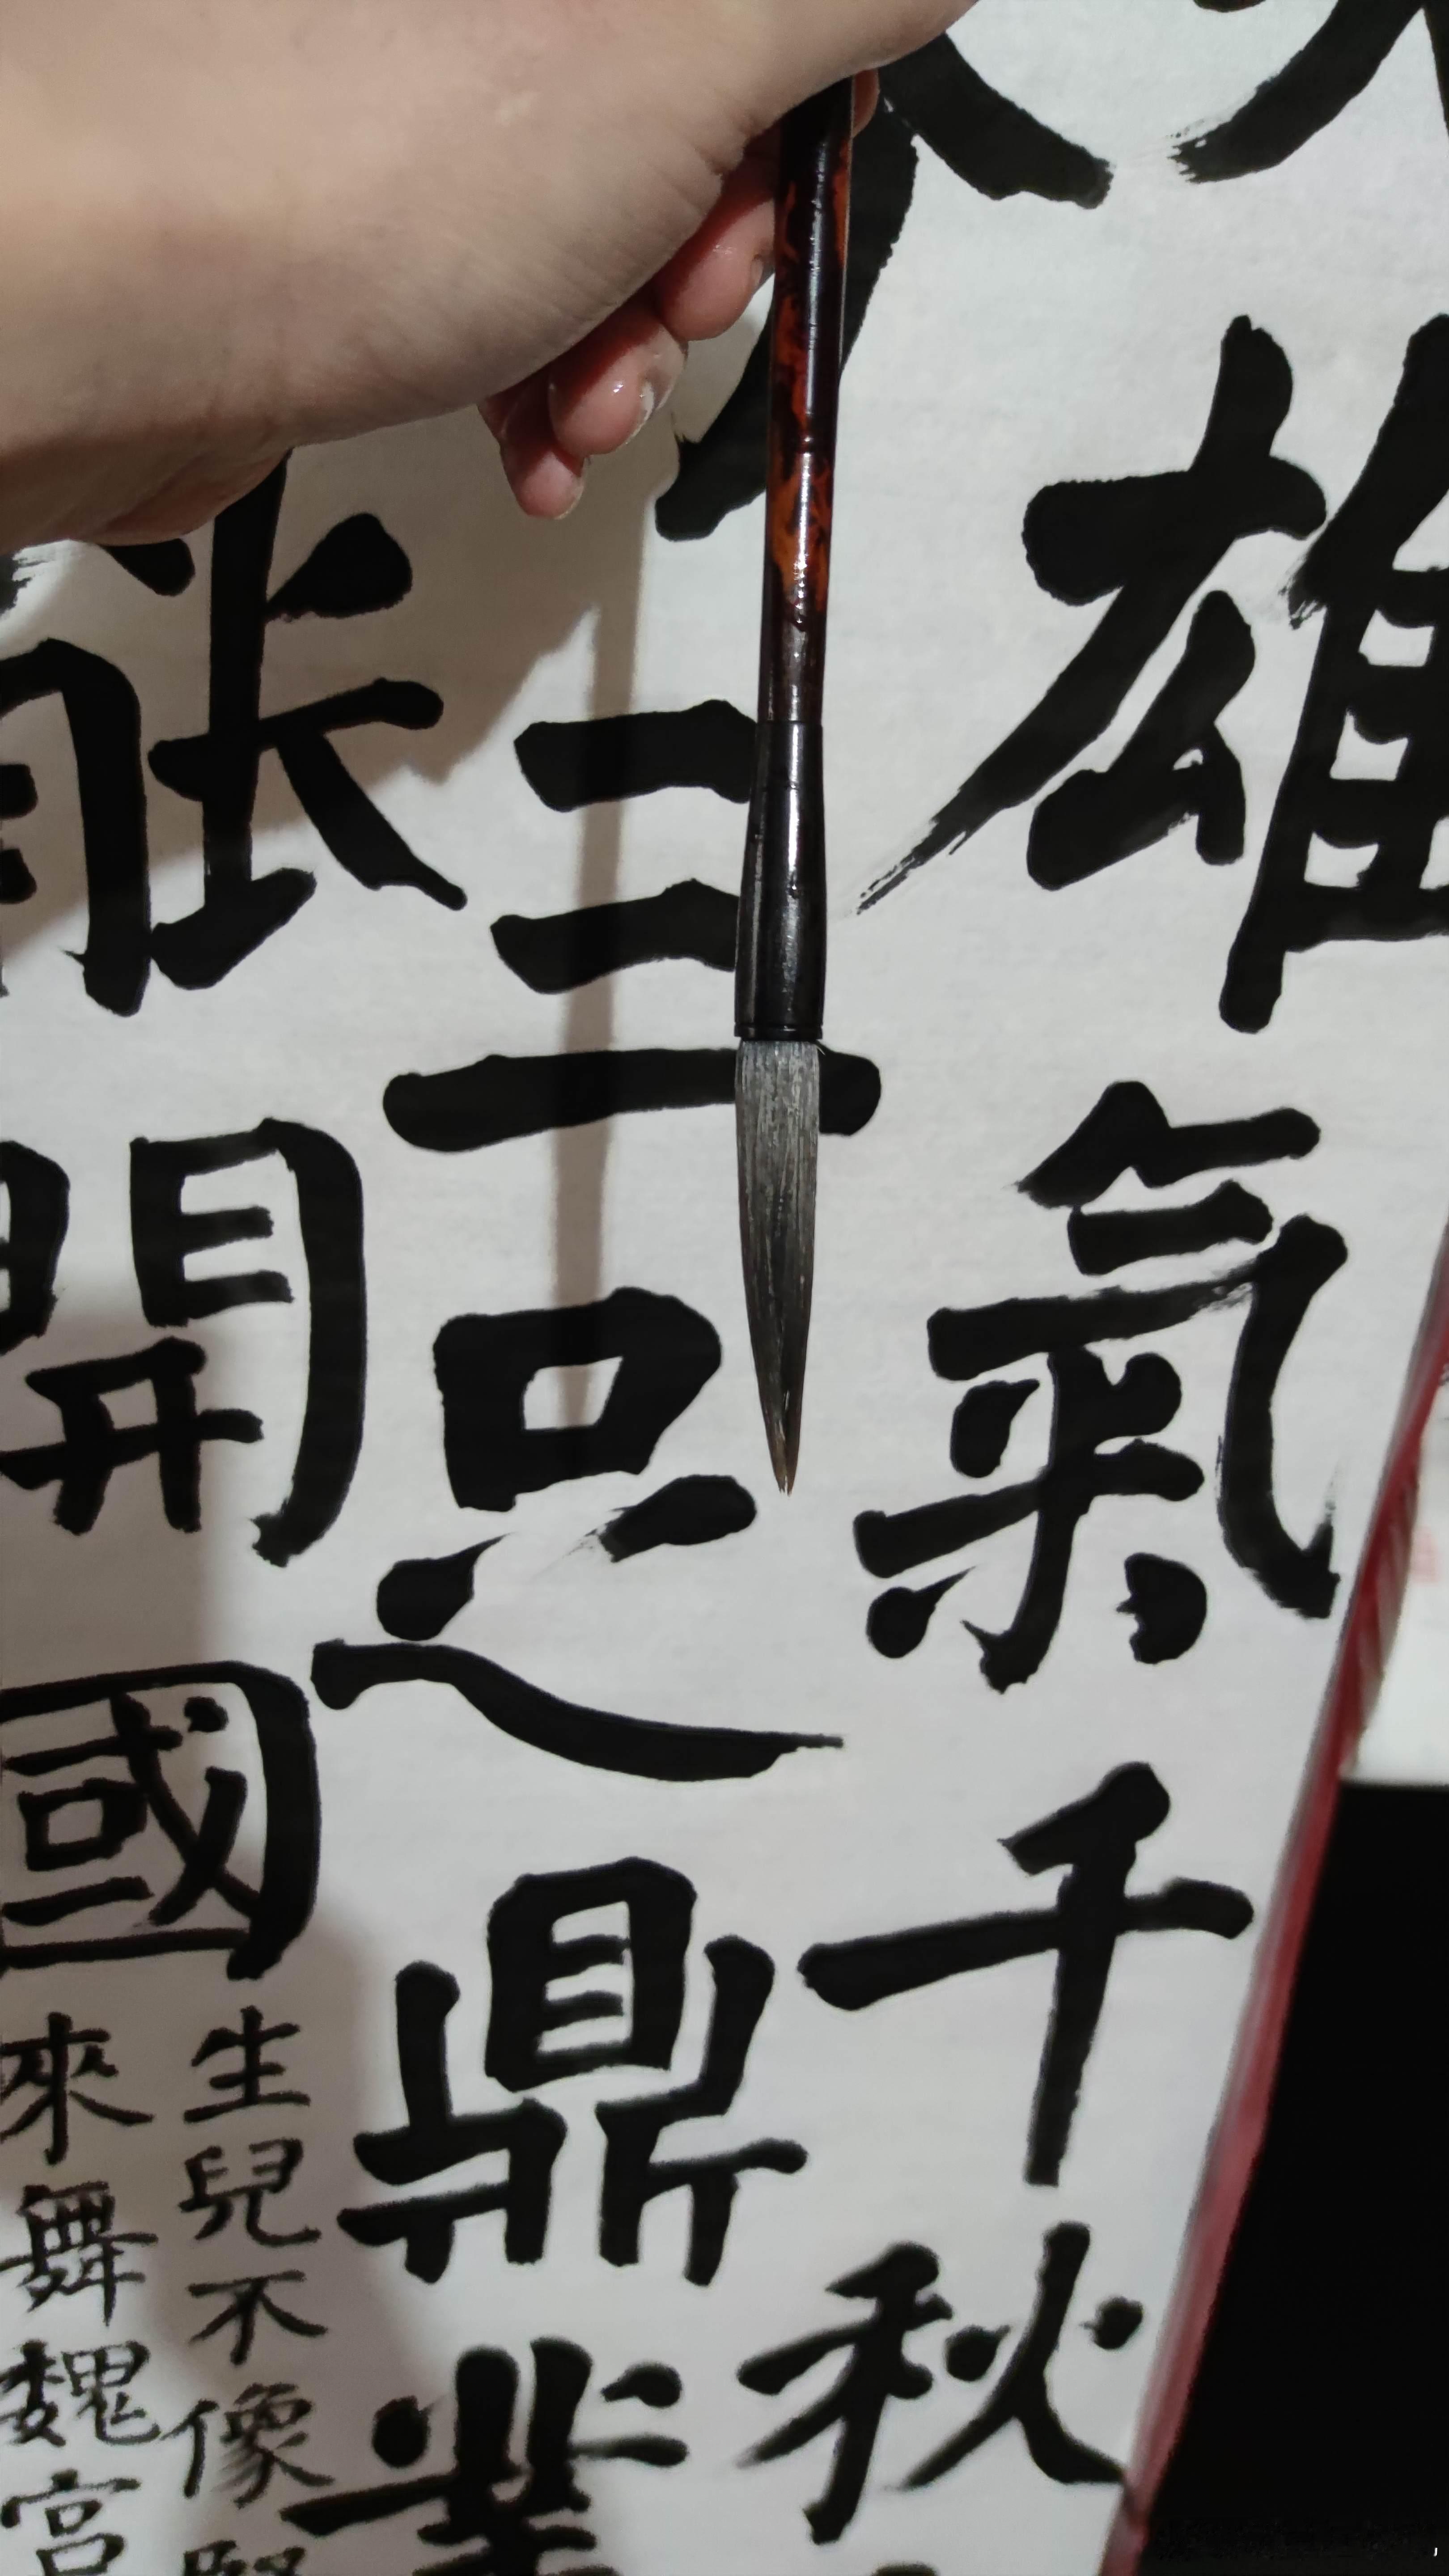 雄氣千秋
三足鼎業
能開國
生兒不像
來舞魏宮